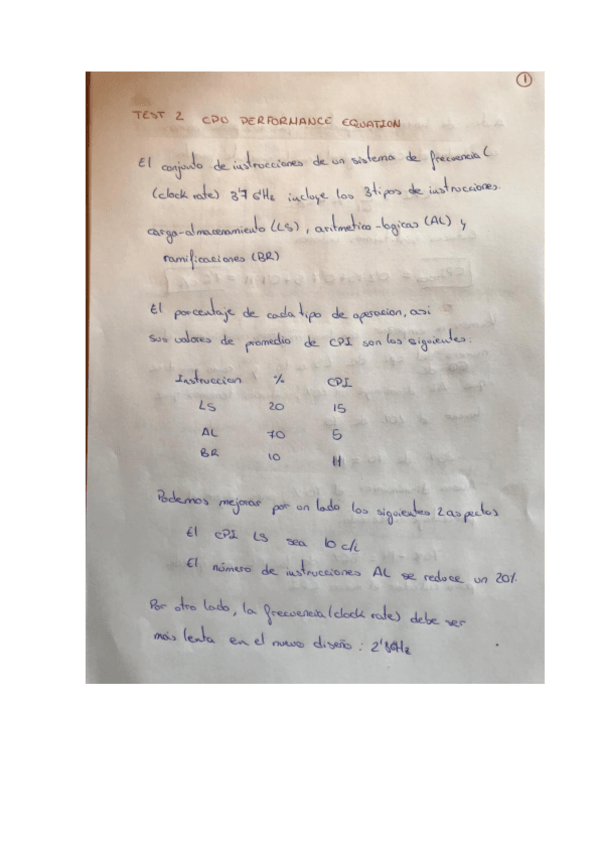 1
TEST 2 CPU PERFORMANCE EQUATION
El conjunto de instrucciones de un sistema de frecuencia (
(clock rate) 3'7 GHz incluye los 3 tipos de instrucciones.
carga-almacenamiento (LS), aritmetico-logicas (AL) y
ramificaciones (BR)
El porcentaje de cada tipo de operacion, asi
sus valores de promedio de CPI son los siguientes.
Instruccion % CPI
LS 20 15
AL 70 5
BR 10 11
Podemos mejorar por un lado los siguientes 2 aspectos
El CPI LS sea 10 c/i
El número de instrucciones AL se reduce un 20%.
Por otro lado, la frecuencia (clock rate) debe ser
más lenta en el nuevo diseño: GHz